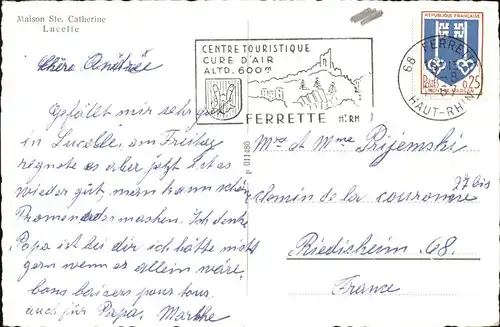 Maison Ste. Catherine
Lucelle
CENTRE TOURISTIQUE
CURE D'AIR
ALTD. 600m
FERRETTE Ht RH
REPUBLIQUE FRANÇAISE
0,25
MONT-DE-MARSAN
68 FERRETTE
HAUT-RHIN
P 011486
Chère
Gefällt mir sehr gut
in Lucelle, am Freitag
regnete es aber jetzt ist es
wieder gut, man kann schön
Promenades maschen. Ich denke
Papa ist bei dir ich hätte nicht
gern wenn er allein wäre
bons baisers pour tous
auch für Papa. Marthe
M et Mme Prijemski
27 bis
chemin de la couronne
Riedisheim 68.
France